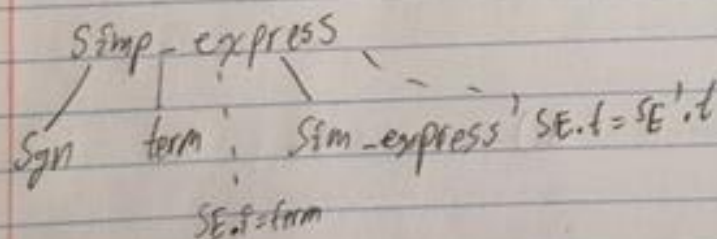 Simp_express
Sgn term Sim_express' SE.t=SE'.t
SE.t=term